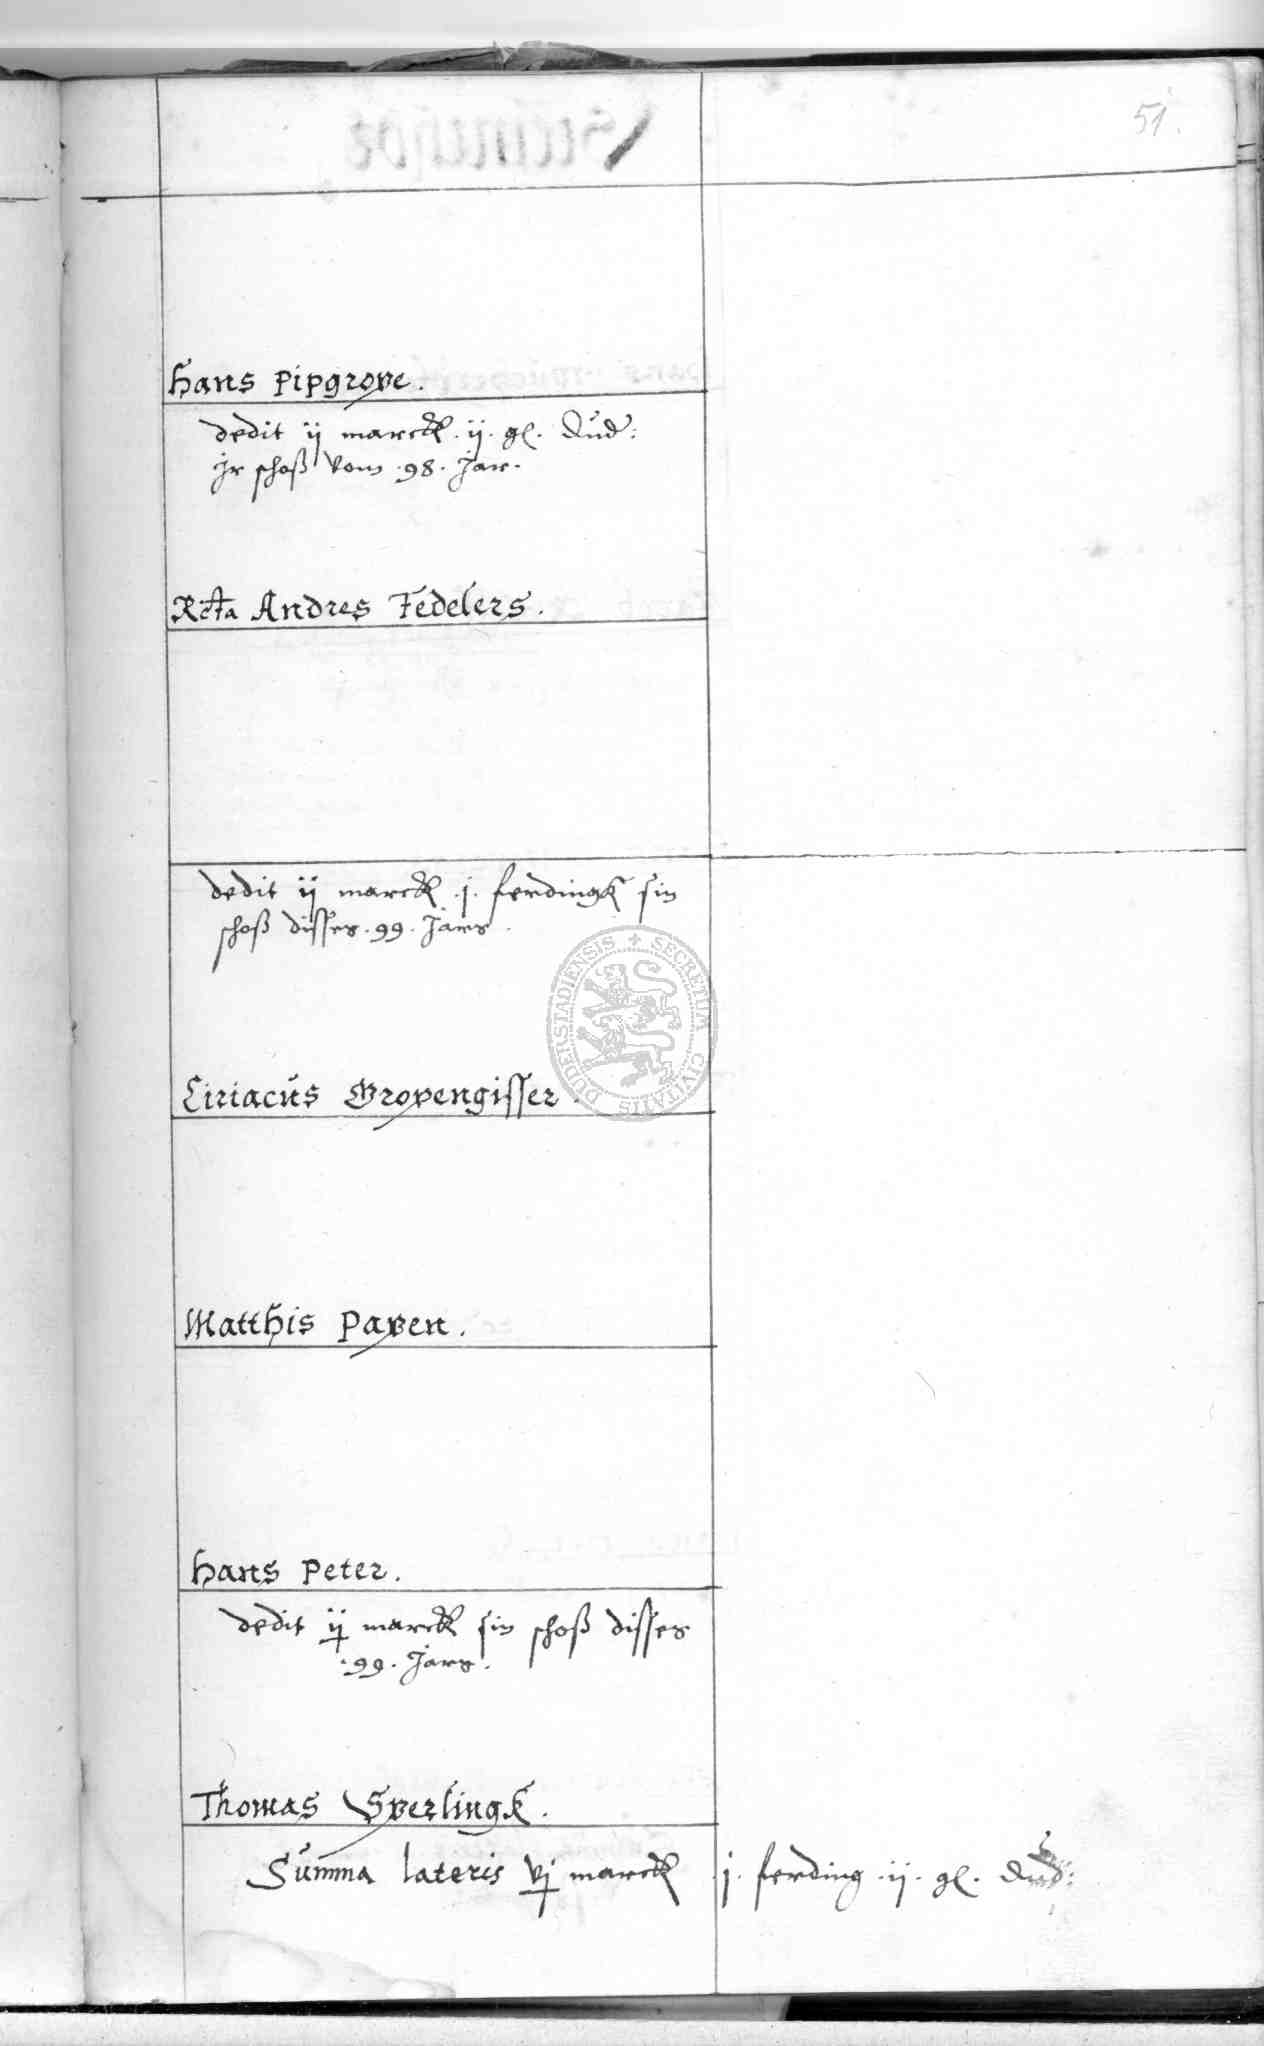 51.
Hans Pipgrove.
dedit ij marck . ij . gl. Dud:
Jr schoß vom . 98 . Jar.
Rcta Andres Fedelers.
dedit ij marck . j . ferdingk sin
schoß disses . 99 . Jars.
Ciriacus Gropengisser.
Matthis Papen.
Hans Peter.
dedit ij marck sin schoß disses
. 99 . Jars.
Thomas Sperlingk.
Summa lateris vj marck . j . ferding . ij . gl. Dud:
DUDERSTADIENSIS + SECRETUM CIVITATIS